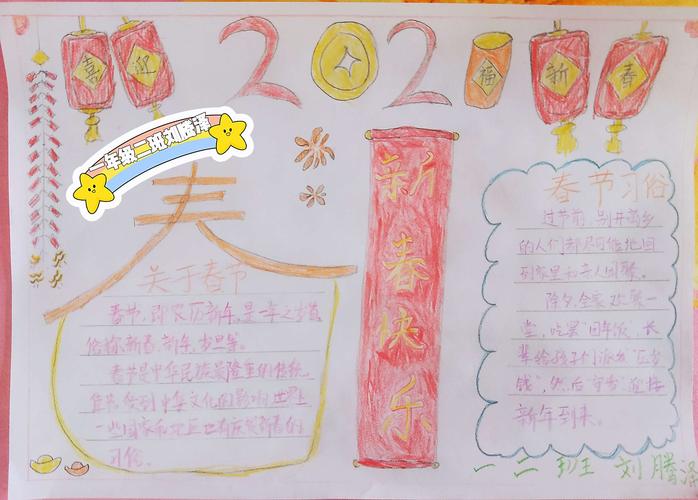 喜
迎
2020
福
新
春
一年级二班刘腾泽
春
关于春节
春节,即农历新年,是一年之岁首,
俗称新春、新年、岁旦等。
春节是中华民族最隆重的传统
佳节,受到中华文化的影响,世界上
一些国家和地区也有庆贺新春的
习俗。
新
春
快
乐
春节习俗
过节前,别井离乡
的人们都尽可能地回
到家里和亲人团聚。
除夕,全家欢聚一
堂,吃罢"团年饭",长
辈给孩子们派发"压岁
钱",然后"守岁"迎接
新年到来。
一二班 刘腾泽